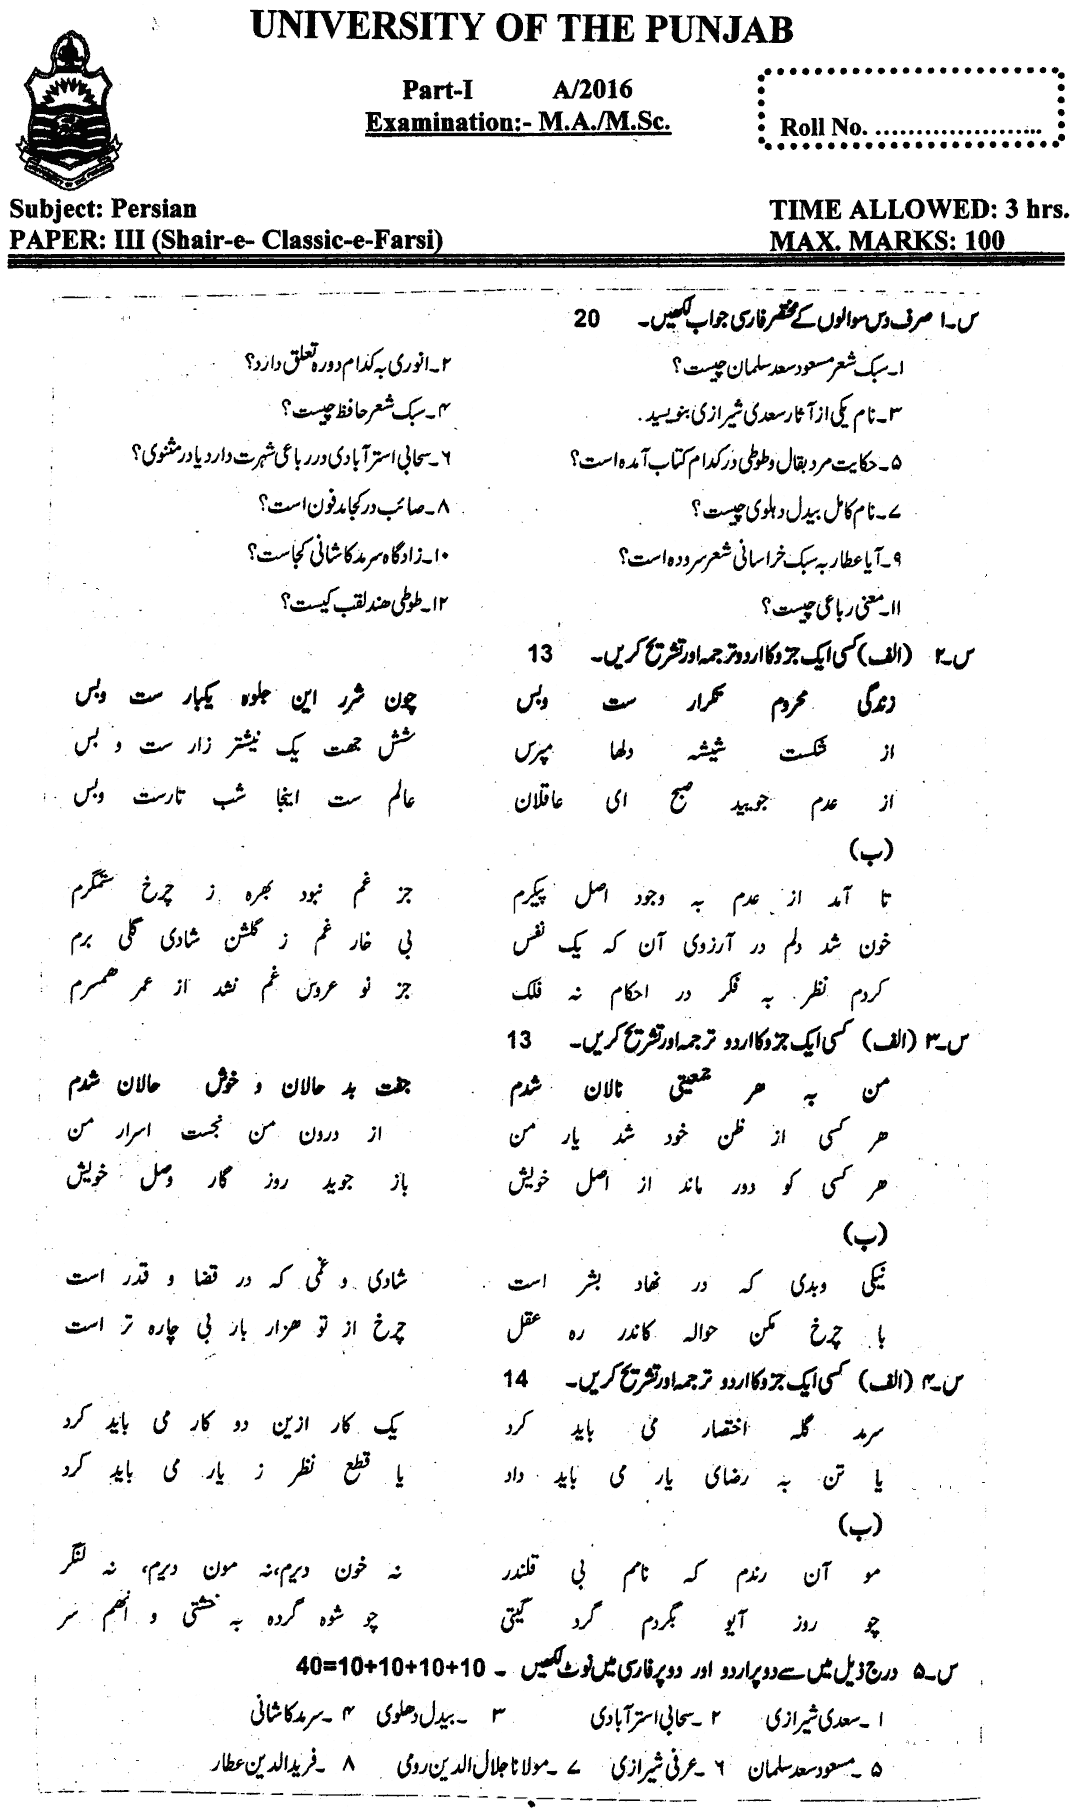 UNIVERSITY OF THE PUNJAB
Part-I A/2016
Examination:- M.A./M.Sc.
Roll No. ........................
Subject: Persian
PAPER: III (Shair-e- Classic-e-Farsi)
TIME ALLOWED: 3 hrs.
MAX. MARKS: 100
س۔۱ صرف دس سوالوں کے مختصر فارسی جواب لکھیں۔ 20
۱۔ سبک شعر مسعود سعد سلمان چیست؟ ۲۔ انوری بہ کدام دورہ تعلق دارد؟
۳۔ نام یکی از آثار سعدی شیرازی بنویسید. ۴۔ سبک شعر حافظ چیست؟
۵۔ حکایت مرد بقال و طوطی در کدام کتاب آمدہ است؟ ۶۔ سحابی استرآبادی در رباعی شہرت دارد یا در مثنوی؟
۷۔ نام کامل بیدل دہلوی چیست؟ ۸۔ صائب در کجا مدفون است؟
۹۔ آیا عطار بہ سبک خراسانی شعر سرودہ است؟ ۱۰۔ زادگاہ سرمد کاشانی کجاست؟
۱۱۔ معنی رباعی چیست؟ ۱۲۔ طوطی ھند لقب کیست؟
س۔۲ (الف) کسی ایک جزو کا اردو ترجمہ اور تشریح کریں۔ 13
زندگی محروم تکرار ست وبس چون شرر این جلوہ یکبار ست وبس
از شکست شیشہ دلھا مپرس شش جھت یک نیشتر زار ست و بس
از عدم جویید صبح ای عاقلان عالم ست اینجا شب تارست وبس
(ب)
تا آمد از عدم بہ وجود اصل پیکرم جز غم نبود بھرہ ز چرخ ستمگرم
خون شد دلم در آرزوی آن کہ یک نفس بی خار غم ز گلشن شادی گلی برم
کردم نظر بہ فکر در احکام نہ فلک جز نو عروس غم نشد از عمر ھمسرم
س۔۳ (الف) کسی ایک جزو کا اردو ترجمہ اور تشریح کریں۔ 13
من بہ ھر جمعیتی نالان شدم جفت بد حالان و خوش حالان شدم
ھر کسی از ظن خود شد یار من از درون من نجست اسرار من
ھر کسی کو دور ماند از اصل خویش باز جوید روز گار وصل خویش
(ب)
نیکی وبدی کہ در نھاد بشر است شادی و غمی کہ در قضا و قدر است
با چرخ مکن حوالہ کاندر رہ عقل چرخ از تو ھزار بار بی چارہ تر است
س۔۴ (الف) کسی ایک جزو کا اردو ترجمہ اور تشریح کریں۔ 14
سرمد گلہ اختصار می باید کرد یک کار ازین دو کار می باید کرد
یا تن بہ رضای یار می باید داد یا قطع نظر ز یار می باید کرد
(ب)
مو آن رندم کہ نامم بی قلندر نہ خون دیرم،نہ مون دیرم، نہ لنگر
چو روز آیو بگردم گرد گیتی چو شوہ گردہ بہ خشتی و انھم سر
س۔۵ درج ذیل میں سے دو پر اردو اور دو پر فارسی میں نوٹ لکھیں ۔ 10+10+10+10=40
۱۔ سعدی شیرازی ۲۔ سحابی استرآبادی ۳۔ بیدل دھلوی ۴۔ سرمد کاشانی
۵۔ مسعود سعد سلمان ۶۔ عرفی شیرازی ۷۔ مولانا جلال الدین رومی ۸۔ فرید الدین عطار